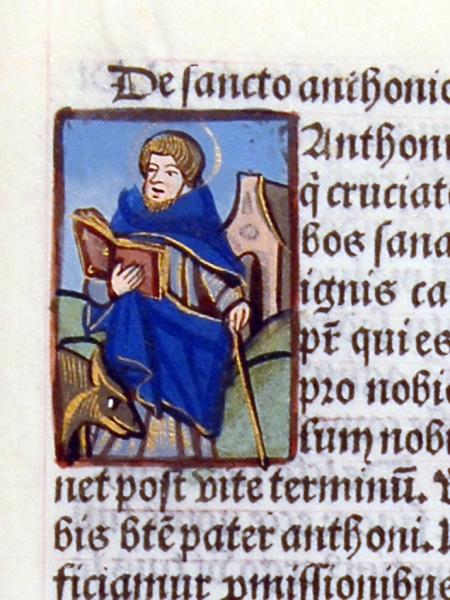 De sancto anthonio
Anthoni
q̄ cruciat
bos sana
ignis ca
pr̄ qui es
pro nobis
lum nobi
net post vite terminū. V
bis btē pater anthoni.
ficiamur pmissionibus